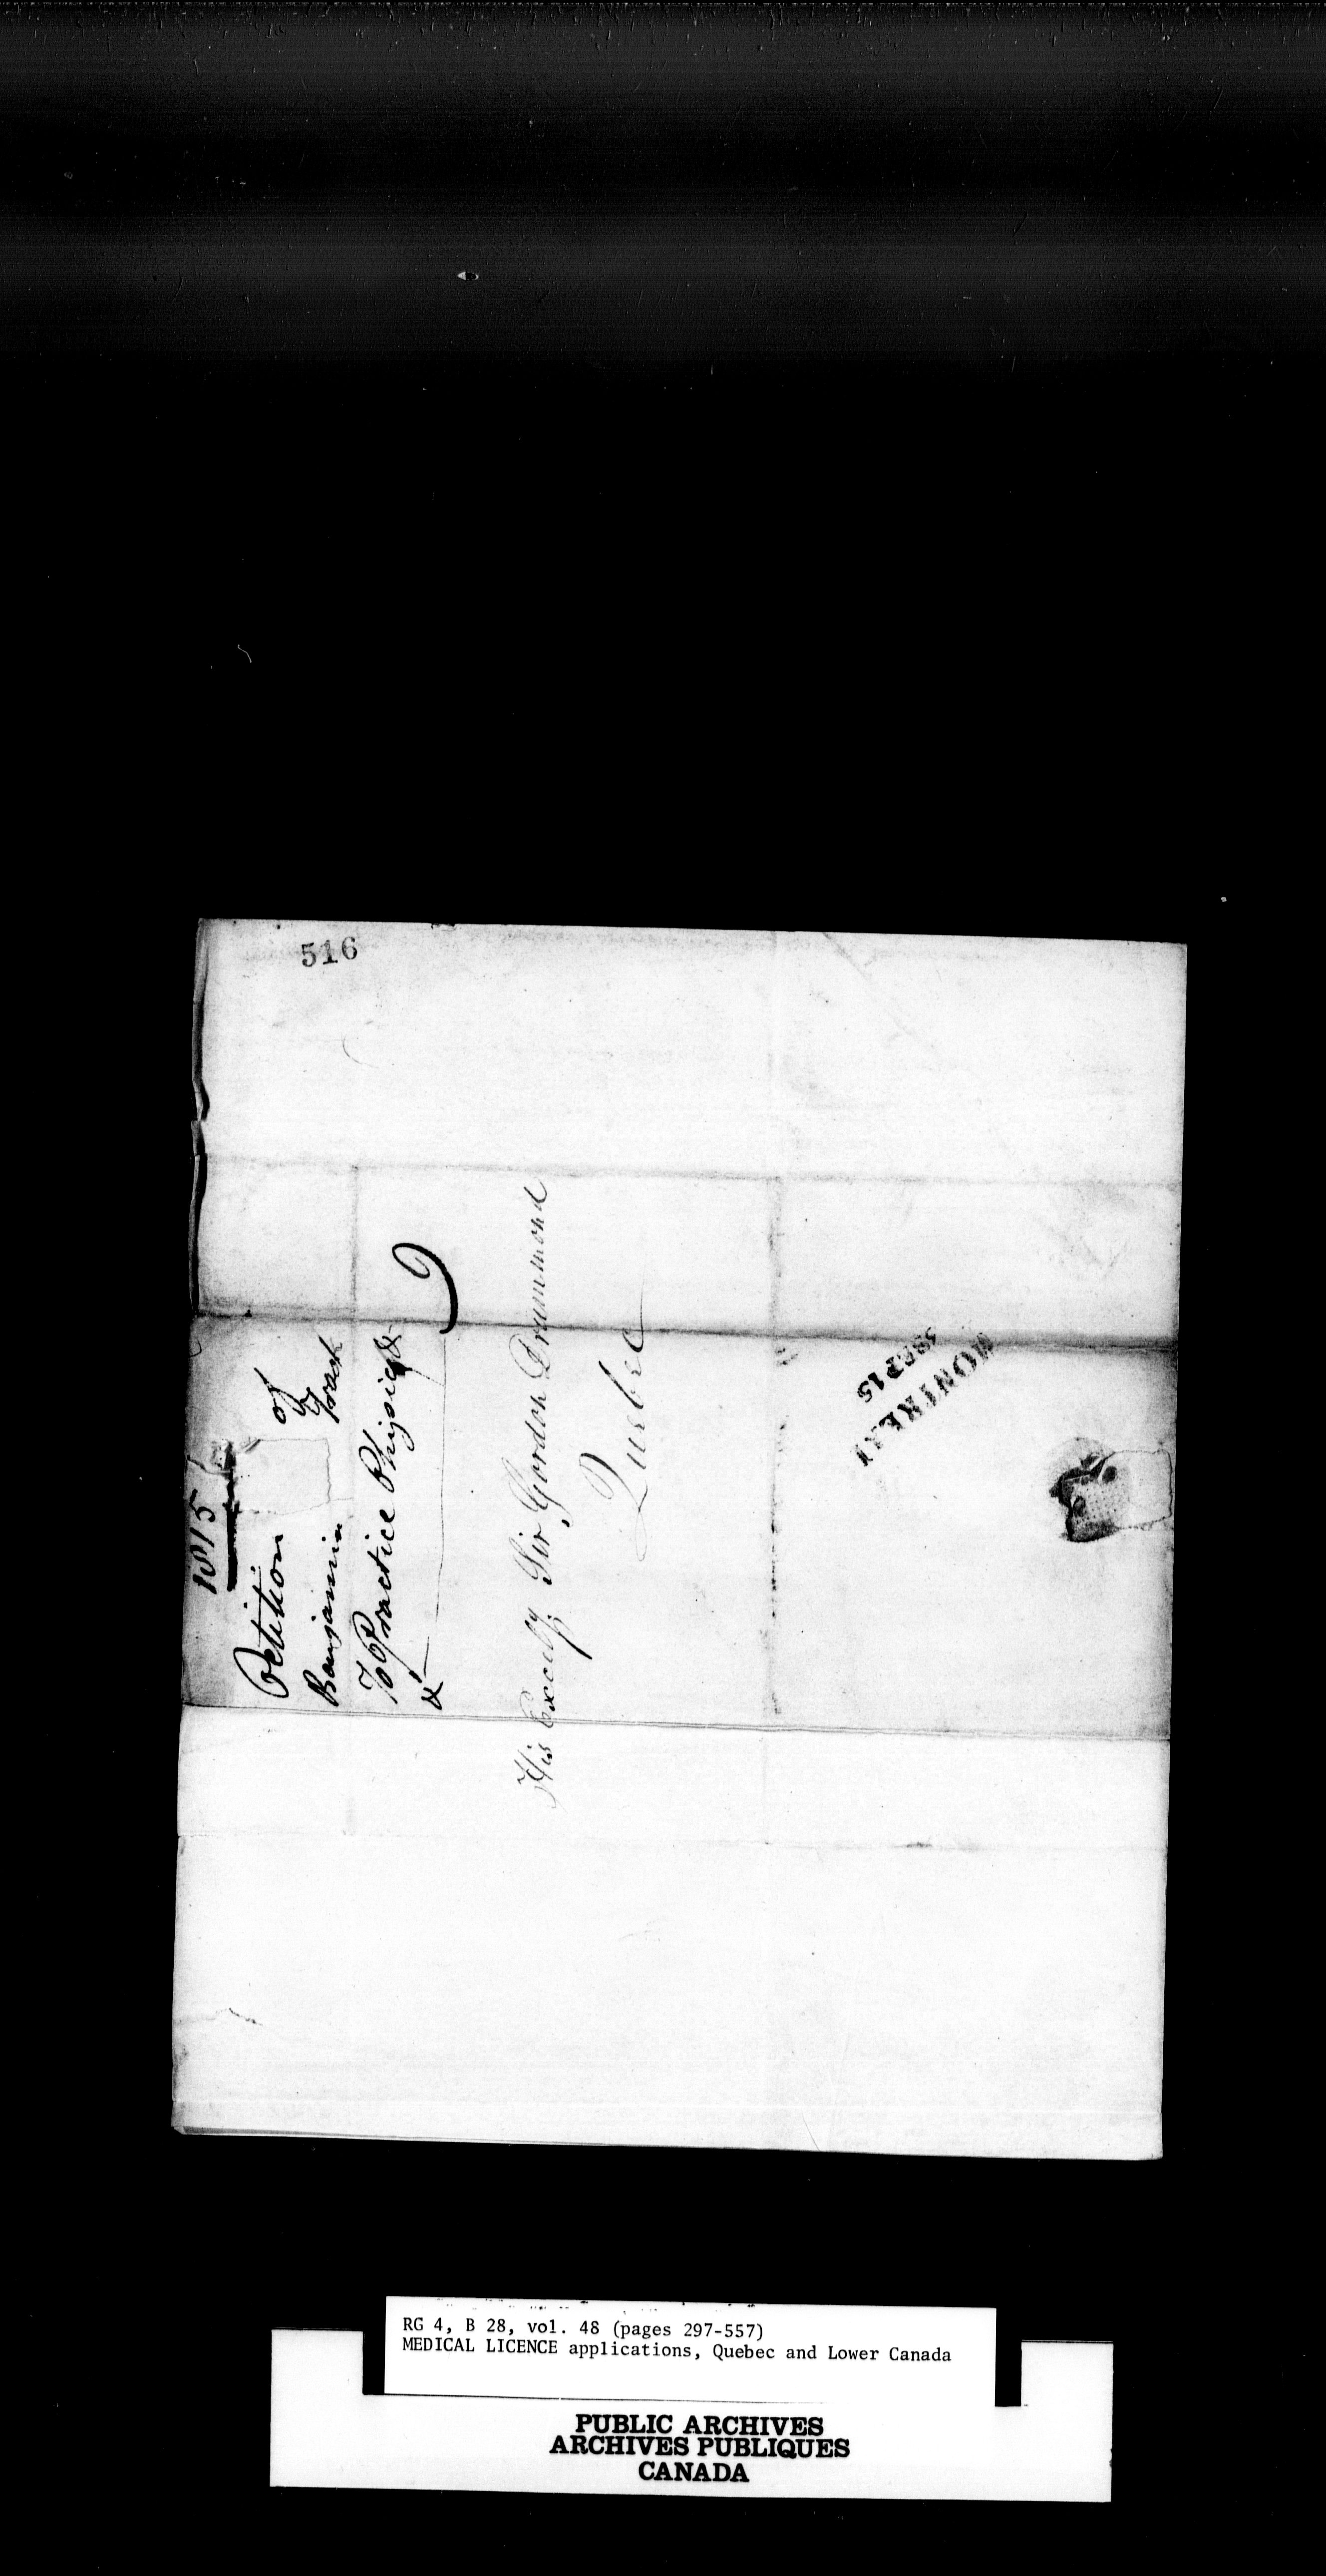 516
1815
Petition of
Benjamin Trask
To Practice Physic &
&
9
His Excelly. Sir Gordon Drummond
Quebec
MONTREAL
SEP 15
RG 4, B 28, vol. 48 (pages 297-557)
MEDICAL LICENCE applications, Quebec and Lower Canada
PUBLIC ARCHIVES
ARCHIVES PUBLIQUES
CANADA